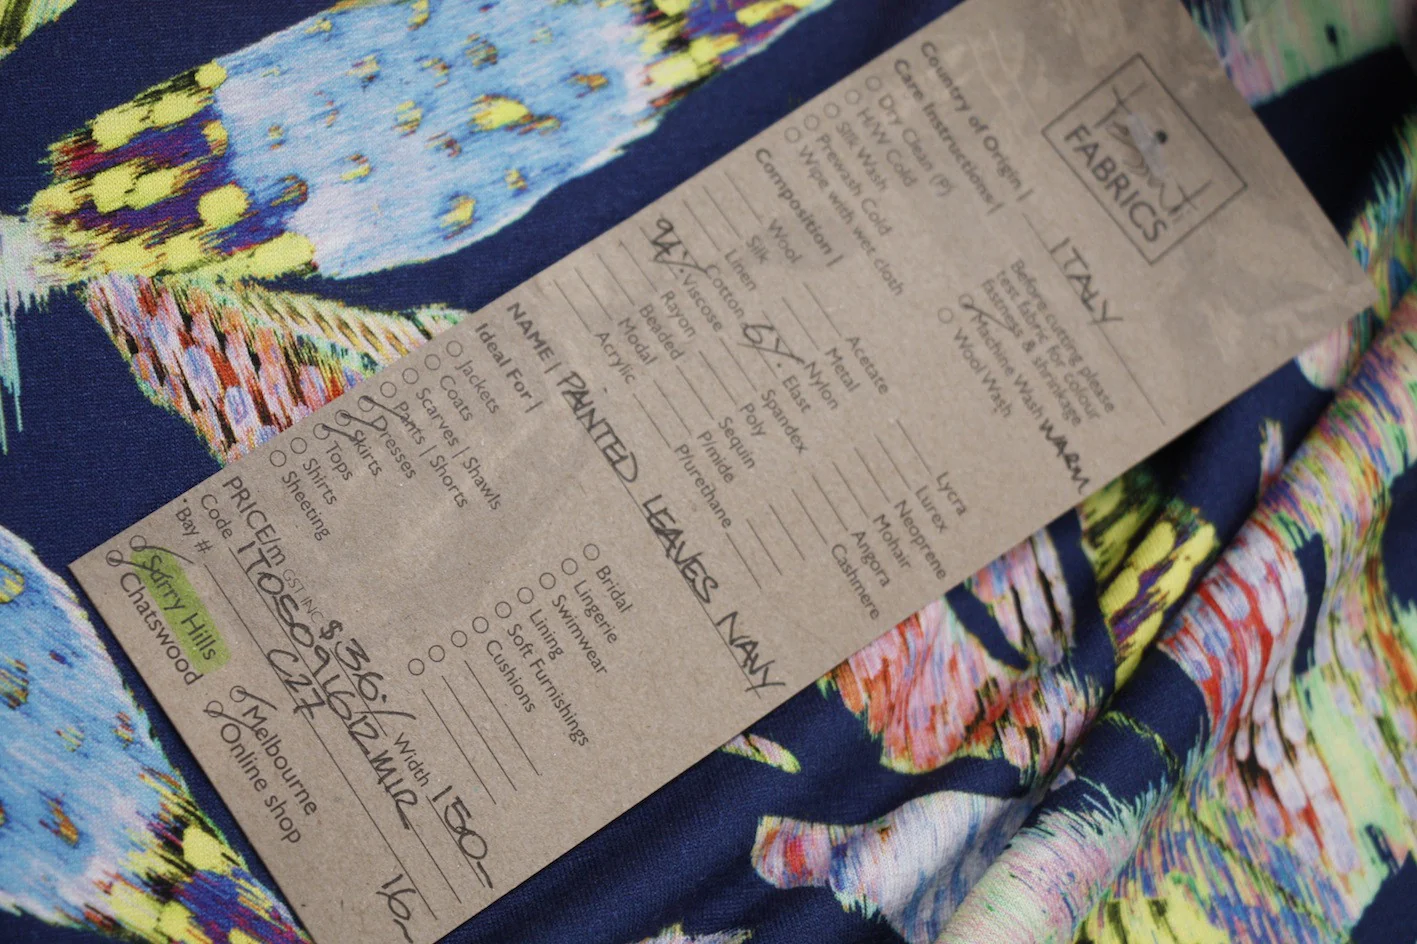 Tessuti
FABRICS
Country of Origin | ITALY
Care Instructions |
Dry Clean (P)
H/W Cold
Silk Wash
Prewash Cold
Wipe with wet cloth
Before cutting please
test fabric for colour
fastness & shrinkage
Machine Wash WARM
Wool Wash
Composition |
Wool
Silk
Linen
Cotton
94% Viscose
Rayon
Beaded
Modal
Acrylic
Acetate
Metal
Nylon
6% Elast
Spandex
Poly
Sequin
P/mide
P/urethane
Lycra
Lurex
Neoprene
Mohair
Angora
Cashmere
NAME | PAINTED LEAVES NAVY
Ideal For |
Jackets
Coats
Scarves | Shawls
Pants | Shorts
Dresses
Skirts
Tops
Shirts
Sheeting
Bridal
Lingerie
Swimwear
Lining
Soft Furnishings
Cushions
PRICE/m GST INC $36/ Width 150
Code ITOS091612MIR
Bay # C27 16
Surry Hills
Chatswood
Melbourne
Online shop